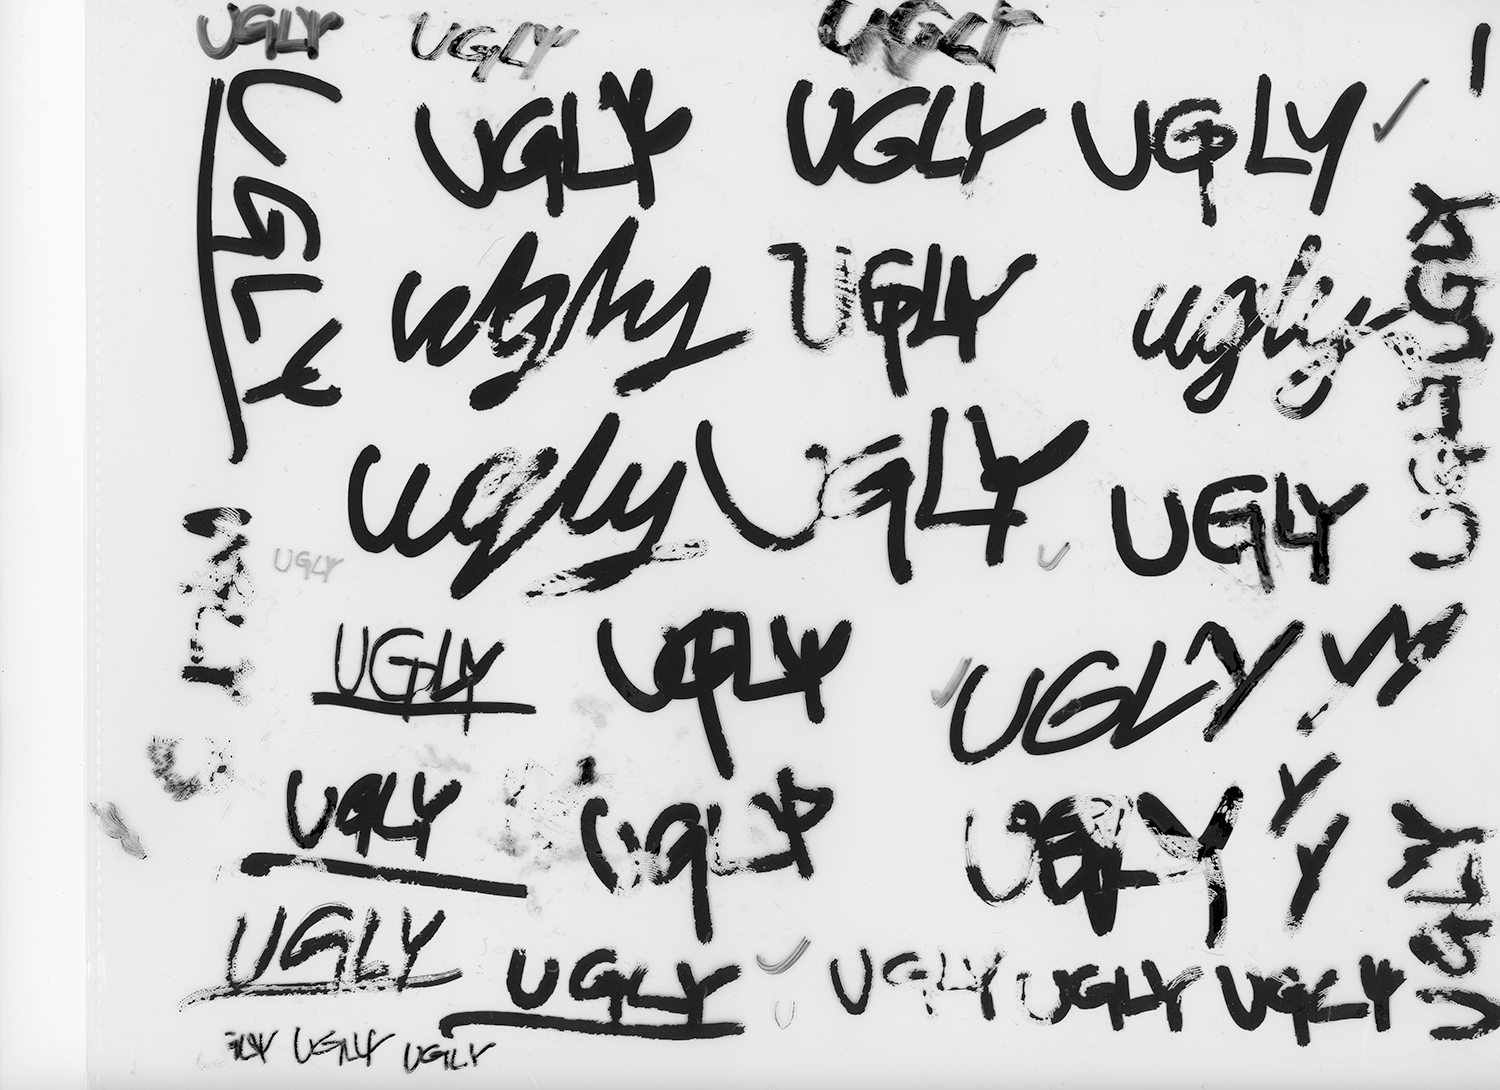 UGLY UGLY UGLY
UGLY UGLY UGLY UGLY
ugly UGLY ugly UGLY
ugly UGLY UGLY
UGLY
UGLY UGLY UGLY Y
UGLY UGLY UGLY Y Y
UGLY UGLY UGLY UGLY UGLY UGLY
GLY UGLY UGLY